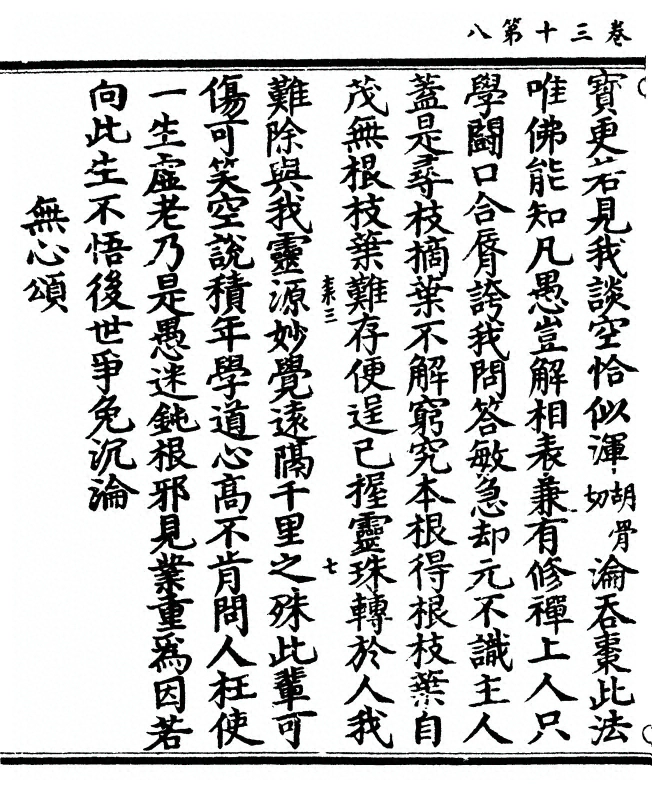 卷三十第八
寶更若見我談空恰似渾胡骨切淪吞棗此法
唯佛能知凡愚豈解相表兼有修禪上人只
學鬪口合脣誇我問答敏急却元不識主人
蓋是尋枝摘葉不解窮究本根得根枝葉自
茂無根枝葉難存便逞已握靈珠轉於人我
三 七
難除與我靈源妙覺遠隔千里之殊此輩可
傷可笑空說積年學道心高不肯問人枉使
一生虛老乃是愚迷鈍根邪見業重爲因若
向此生不悟後世爭免沉淪
無心頌